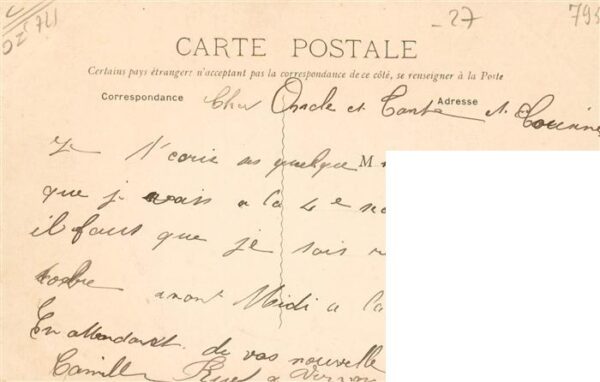 -27
CARTE POSTALE
Certains pays étrangers n'acceptant pas la correspondance de ce côté, se renseigner à la Poste
Correspondance
Adresse
Cher Oncle et Tante et Cousine
Je t'écris ces quelque
M
que je vais a la 4e
il faut que je sois
avant Midi a la
En attendant de vos nouvelle
Camille